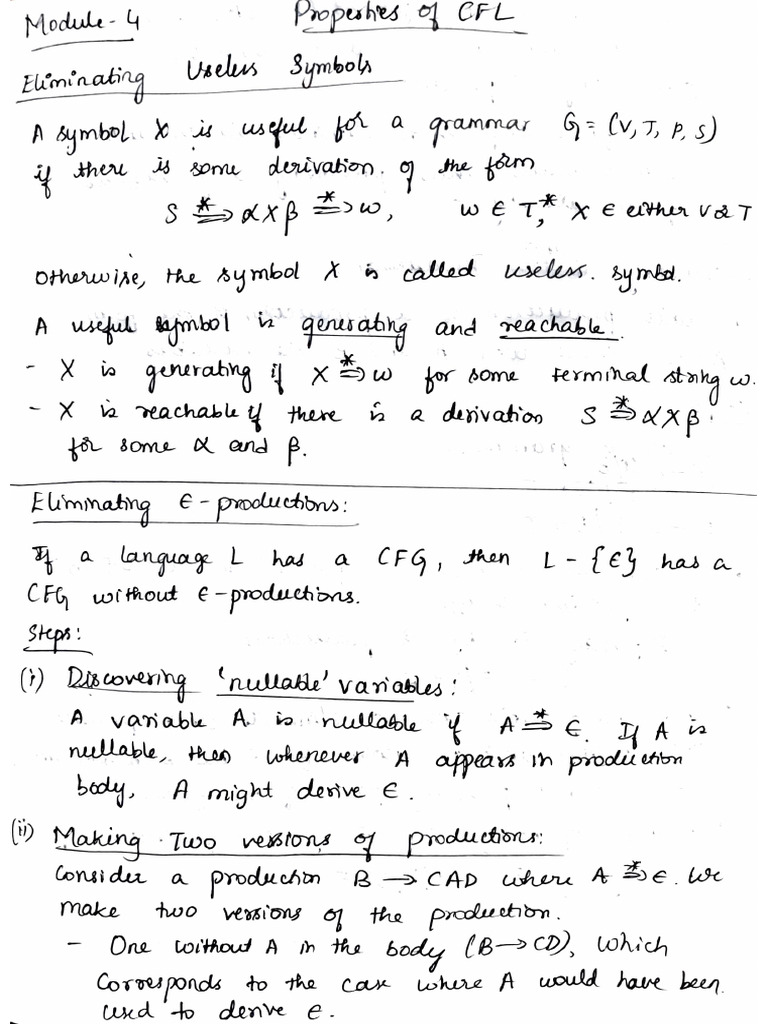 Module-4 Properties of CFL
Eliminating Useless Symbols
A symbol X is useful for a grammar G = (V, T, P, S)
if there is some derivation of the form
S ⇒* αXβ ⇒* w, w ∈ T*, X ∈ either V or T
Otherwise, the symbol X is called useless symbol.
A useful symbol is generating and reachable.
- X is generating if X ⇒* w for some terminal string w.
- X is reachable if there is a derivation S ⇒* αXβ
for some α and β.
Eliminating ϵ-productions:
If a language L has a CFG, then L - {ϵ} has a
CFG without ϵ-productions.
Steps:
(i) Discovering 'nullable' variables:
A variable A is nullable if A ⇒* ϵ. If A is
nullable, then whenever A appears in production
body, A might derive ϵ.
(ii) Making Two versions of productions:
Consider a production B → CAD where A ⇒* ϵ. We
make two versions of the production.
- One without A in the body (B → CD), which
corresponds to the case where A would have been
used to derive ϵ.